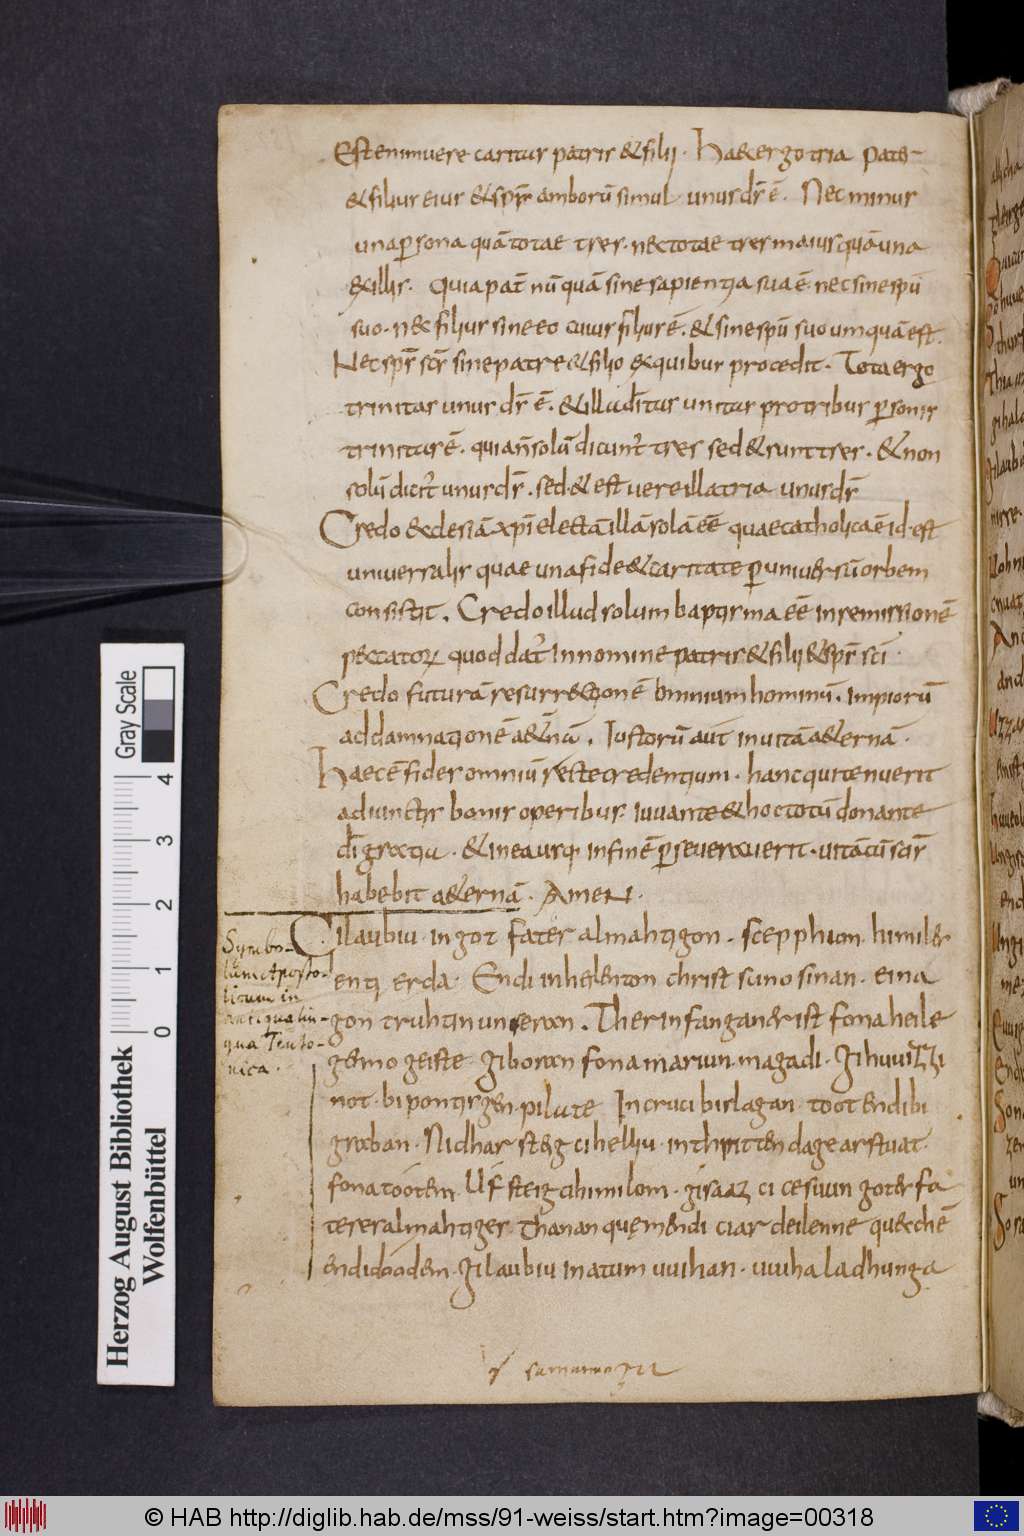 Est enim vere caritas patris & filii. Haec ergo tria pater
& filius eius & sp̄s amborū simul unus d̄s ē. Nec minus
una p̄sona quā totae tres. nec totae tres maius quā una
ex illis. Quia pat̄ nū quā sine sapientia sua ē nec sine sp̄u
suo. nec filius sine eo cuius filius ē. & sine sp̄u suo umquā est.
Nec sp̄s sc̄s sine patre & filio ex quibus procedit. Tota ergo
trinitas unus d̄s ē. & illud
solū dicit̄ unus d̄s. sed & est vere illa tria unus d̄s
Credo ecclesiā xp̄i electā illā solā eē quae catholica ē id est
universalis quae una fide & caritate p̄ universū orbem
consistit. Credo illud solum baptisma eē in remissionē
peccatorꝝ quod dat̄ in nomine patris & filii & sp̄s sc̄i.
Credo futurā resurrectionē omnium hominū. impiorū
ad damnationē aet̄nā. Iustorū aut̄ in vitā aeternā.
Haec ē fides omniū recte credentium. hanc qui tenuerit
adiunctis bonis operibus. iuvante & hoc totū donante
d̄i gratia. & in ea usq; in finē p̄severaverit. vitā cū sc̄is
habebit aeternā. Amen.
Symbo-
lum Aposto-
licum in
antiqua lin-
gua Teuto-
nica.
Gilaubiu in got fater almahtigon. scepphion himiles
enti erda. Endi in heilenton christ suno sinan. eina
gon truhtin unseran. Ther infanganer ist fona heile
gemo geiste. giboran fona mariun magadi. giuuuizzi
not bi pontisgen pilate In cruci bislagan. toot endi bi
graban. Nidhar steig ci helliu. in thritten dage arstuat
fona tootem. Uf steig ci himilom. gisaaz ci cesuun goter fa
teres almahtiges. thanan quemendi ci ardeilenne quecchē
endi doodem. Gilaubiu in atum uuihan. uuiha ladhunga